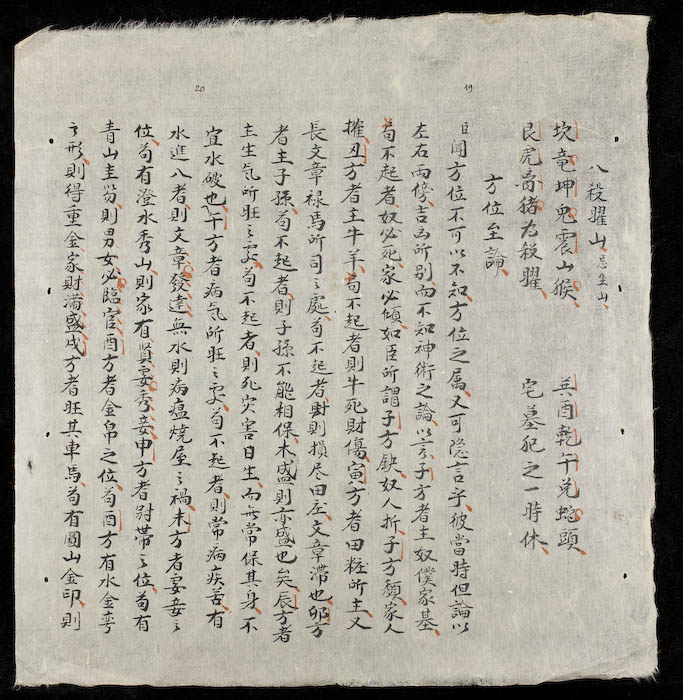 19
八殺曜山忌坐山
坎竜坤兎震山猴 巽酉乾午兌蛇頭
艮虎离猪為殺曜 宅墓犯之一時休
方位至論
臣聞方位不可以不知方位之属又可隐言乎彼當時但論以
左右两傍吉凶所別而不知神術之論以言子方者主奴僕家基
苟不起者奴必死家必傾如臣所謂子方缺奴人折子方頹家人
摧丑方者主牛羊苟不起者則牛死財傷寅方者田粧所主又
20
長文章禄馬所司之處苟不起者財則損尽田庄文章滯也卯方
者主子孫苟不起者則子孫不能相保木盛則亦盛也矣辰方者
主生氣所旺之處苟不起者則死灾害日生而常保其身不
宜水破也午方者病氣所旺之處苟不起者則常病疾苦有
水進八者則文章發達無水則病瘟燒屋之禍未方者妻妾之
位苟有澄水秀山則家有賢妻秀妾申方者帶之位苟有
青山圭笏則男女必臨官酉方者金帛之位苟酉方有水金
之形則得重金家財滿盛戌方者旺其車馬苟有圓山金印則